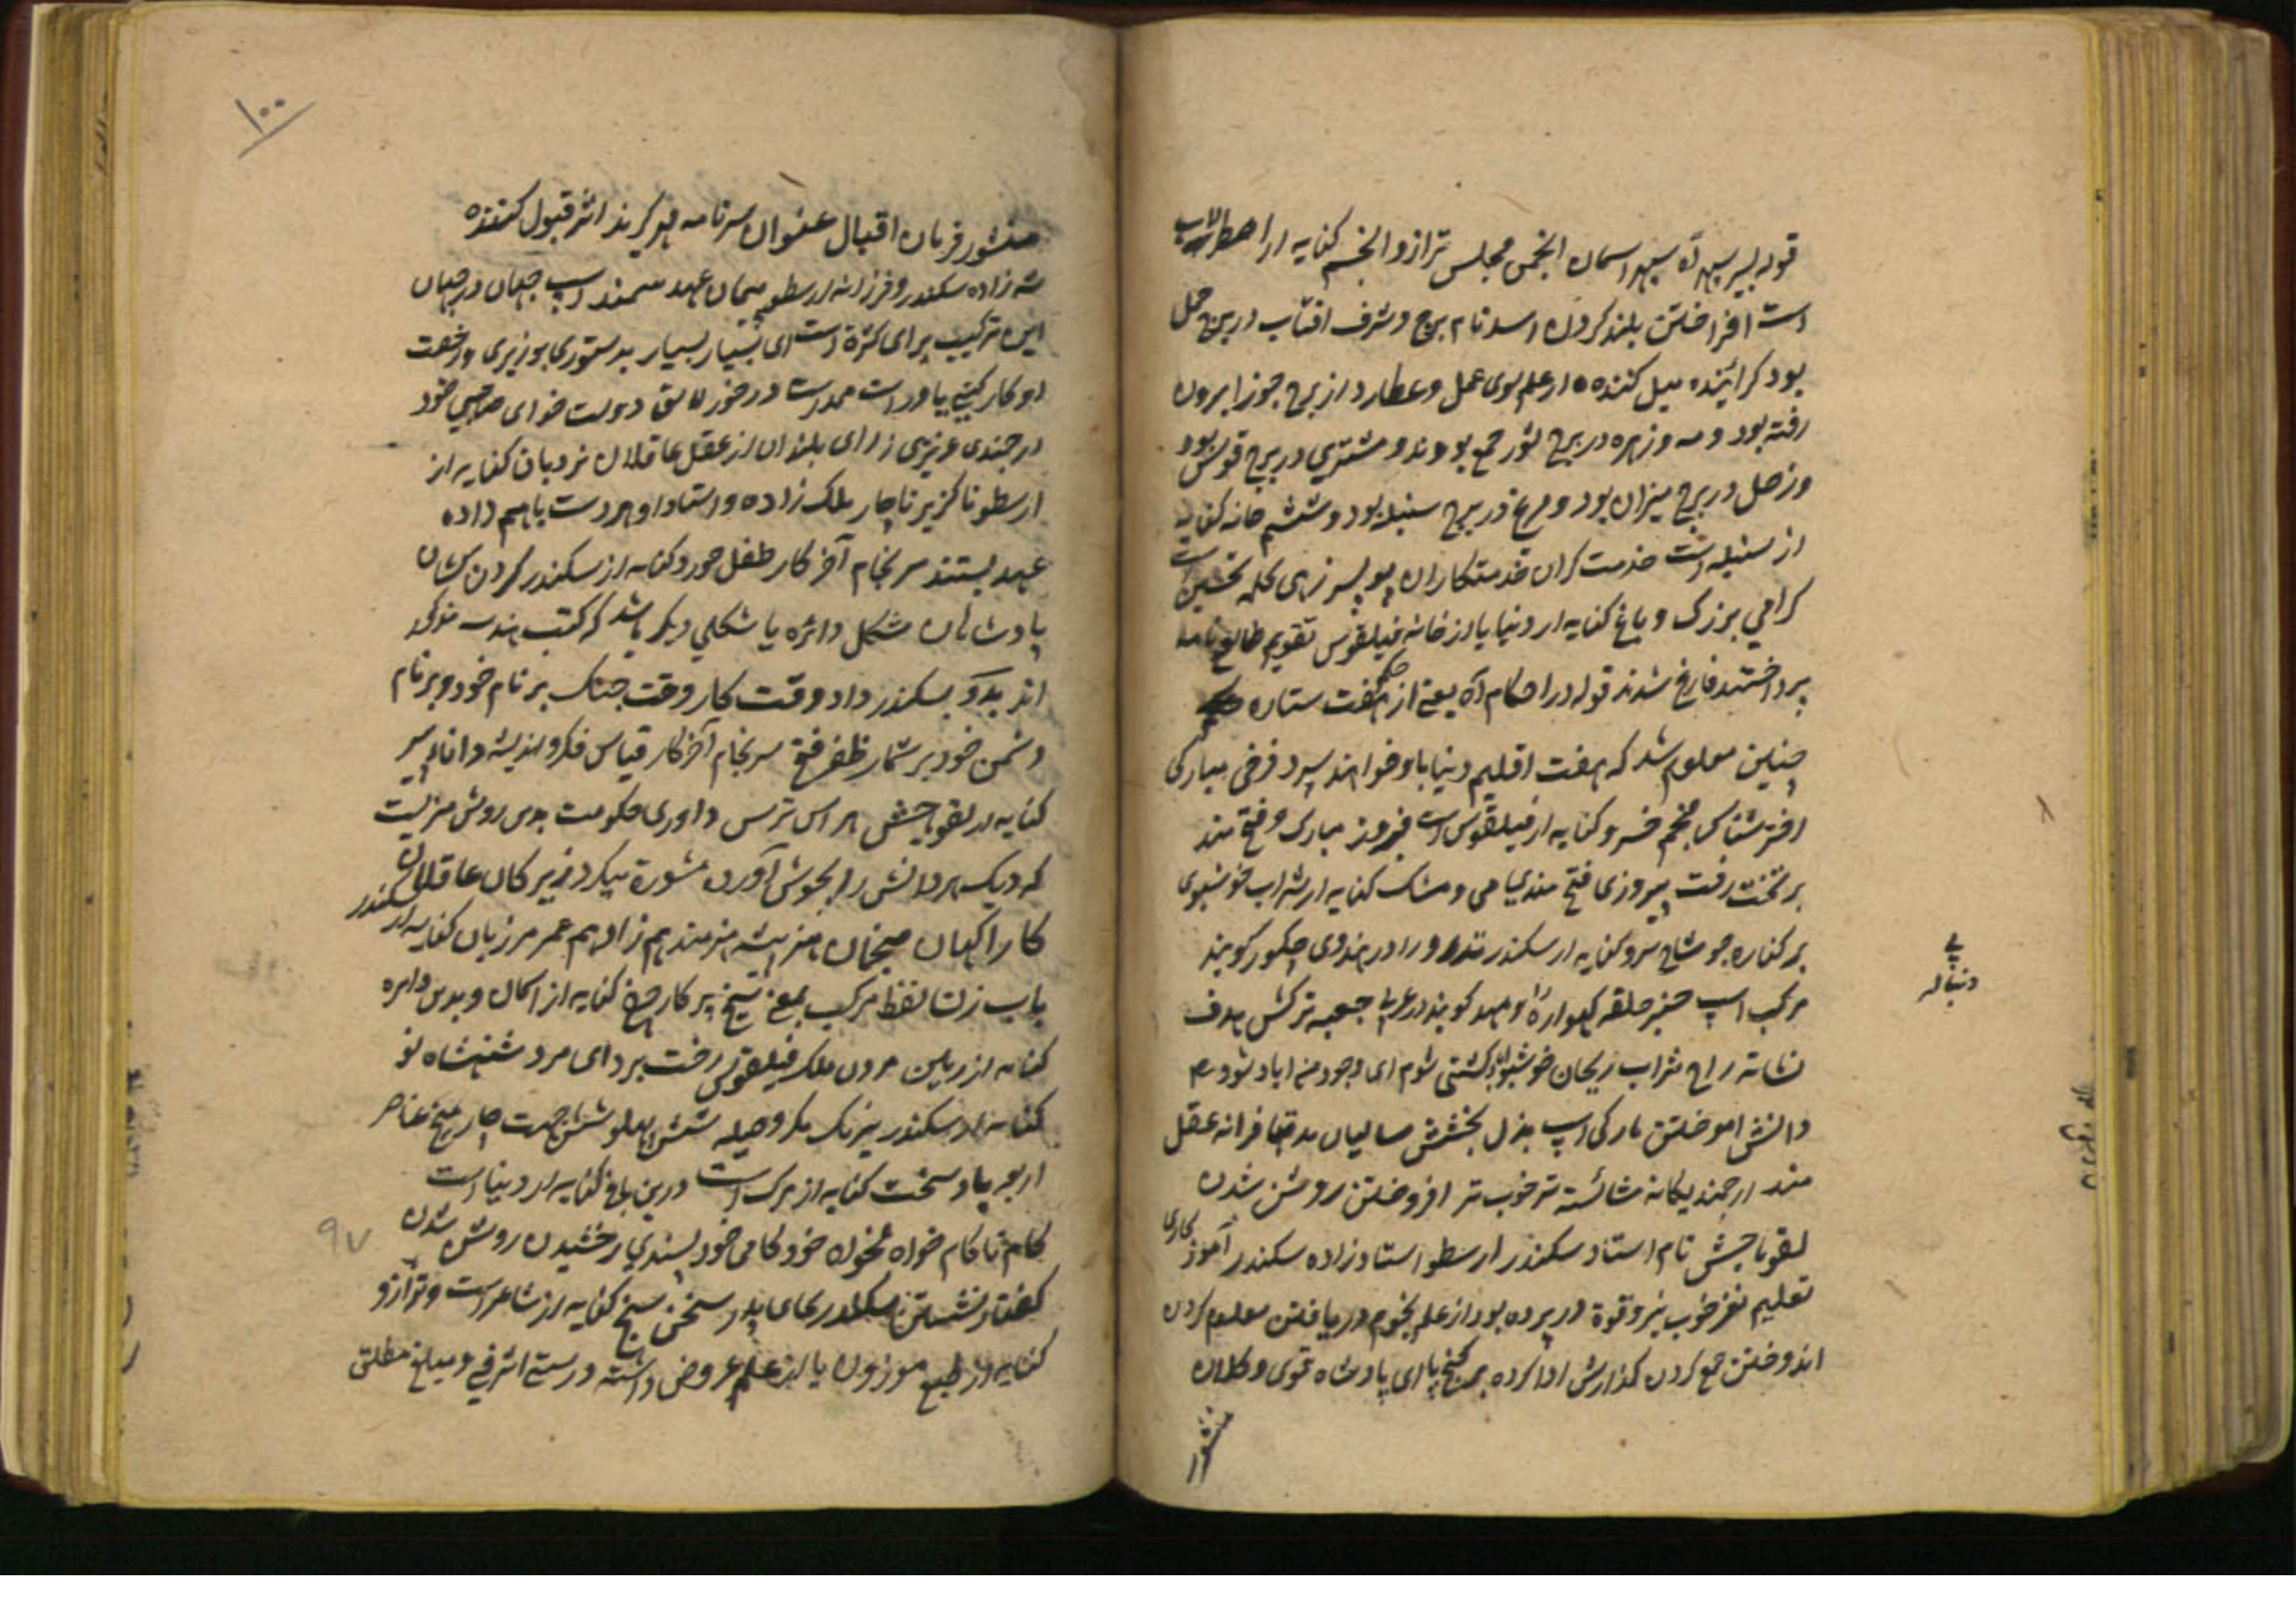 قوله بسیر سپهر آه سپهر اسمان انجمن مجلس ترازو انجم کنایه از اصطرلاب
است افراختن بلند کردن اسد نام برج و شرف افتاب در برج حمل
بود کرائینده میل کننده از علم سوی عمل و عطارد از برج جوزا بیرون
رفته بود و مه و زهره در برج ثور جمع بودند و مشتری در برج قوس بود
و زحل در برج میزان بود و مریخ در برج سنبله بود و ششم خانه کنایه
از سنبله است خدمت کران خدمتکاران پور پسر زهی کلمه تحسین است
کرامی بزرک و باغ کنایه از دنیا یا از خانه فیلقوس تقویم طالع نامه
پرداختند فارغ شدند قوله در احکام آه یعنی از حکم هفت ستاره
چنین معلوم شد که هفت اقلیم دنیا باو خواهند سپرد فرخی مبارکی
اختر شناس منجم خسرو کنایه از فیلقوس است فیروز مبارک و فتح مند
بر تخت رفت پیروزی فتح مندی می و مشک کنایه از شراب خوشبوی
بر کناره جو شاخ سرو کنایه از سکندر تذرو را در هندوی چکور کویند
مرکب اسپ چنبر حلقه کهواره را و مهد کویند در عربی جعبه ترکش هدف
نشانه راح شراب ریحان خوشبو کشتی شوم ای وجود من اباد شود
دانش اموختن بارکی اسپ بذل بخشش سالیان مدتها فرزانه عقل
مند ارجمند یکانه شائسته تر خوب تر افروختن روشن شدن
لقوماجش نام استاد سکندر ارسطو استاد زاده سکندر آموزکاری
تعلیم نغز خوب نیرو قوة در پرده بود از علم نجوم دریافتن معلوم کردن
اندوختن جمع کردن کذارش ادا کرده بر کنج پا ای پادشاه قوی و کلان
منشور
پی
دنباله
۱۰۰
منشور فرمان اقبال عنوان سرنامه پذیرنده اثر قبول کننده
شه زاده سکندر و فرزانه ارسطو پیمان عهد سمند اسپ جهان در جهان
این ترکیب برای کثرة است ای بسیار بسیار بدستوری بوزیری و رخصت
او کار کنی یاور است مددست درخور لائق دولت خدای صاحبی خود
ارجمندی عزیزی ز رای بلندان از عقل عاقلان نردبان کنایه از
ارسطو ناکزیر ناچار ملک زاده و استاد او هر دست باهم داده
عهد بستند سرنجام آخر کار طفل خورد کنایه از سکندر کردن کشان
پادشاهان شکل دائره یا شکلی دیکر باشد که کتب هندسه مذکور
اند بدو بسکندر داد وقت کار وقت جنک بر نام خود و بر نام
دشمن خود بر شمار ظفر فتح سرنجام آخر کار قیاس فکر و اندیشه دانا پیر
کنایه از لقوماجش هراس ترس داوری حکومت بدین روش منزلیت
که دیک هر دانش را بجوش آورد مشوره میکرد زیرکان عاقلان
کار اکهان منجمان هنر پیشه هنرمند هم زاد هم عمر مرزبان کنایه از سکندر
باب زن لفظ مرکب بمعنی سیخ پرکار چرخ کنایه از اسمان و بدین دایره
کنایه از زمین مردن ملک فیلقوس رخت برد ای مرد شهنشاه نو
کنایه از سکندر نیرنک مکر و حیله شش پهلو شش جهت چار میخ عناصر
اربعه باد سخت کنایه از مرک است درین باغ کنایه از دنیا است
کام ناکام خواه مخواه خودکامی خود پسندی رخشیدن روشن شدن
کفتار نشستن سکندر بجای پدر سخن سنج کنایه از شاعر است و ترازو
کنایه از طبع موزون یا از علم عروض داشته درستی اشرفی و مبلغ مطلق
۹۷